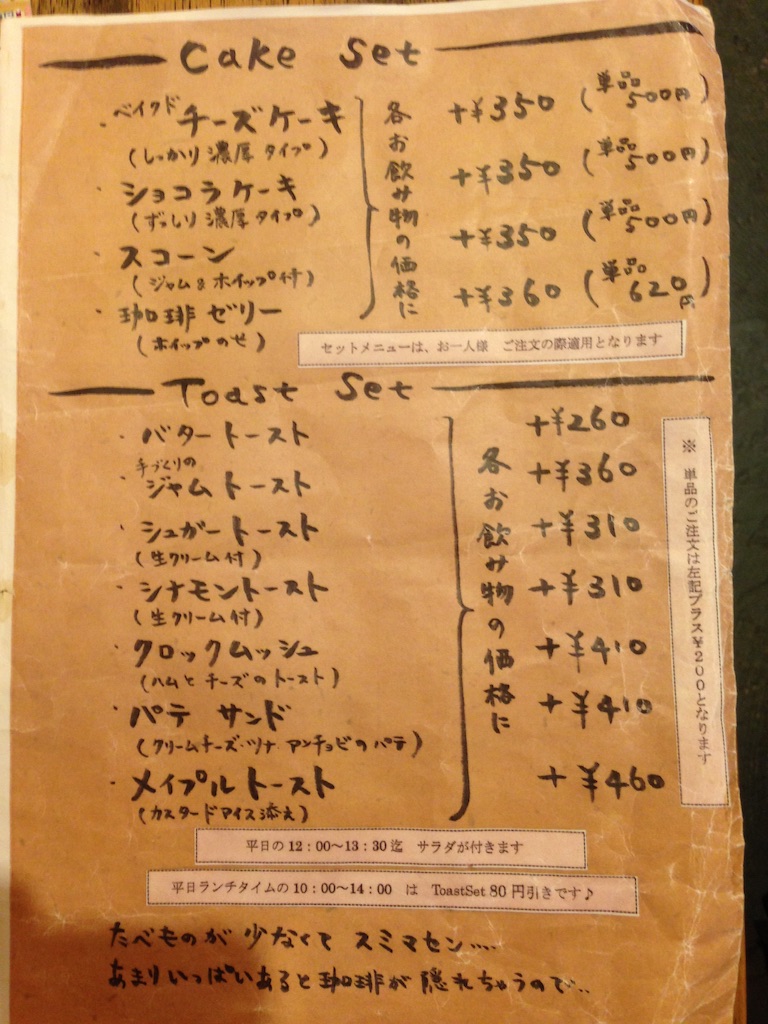 Cake Set
・ベイクドチーズケーキ +¥350 (単品500円)
(しっかり濃厚タイプ)
・ショコラケーキ +¥350 (単品500円)
(ずっしり濃厚タイプ)
・スコーン +¥350 (単品500円)
(ジャム&ホイップ付)
・珈琲ゼリー +¥360 (単品620円)
(ホイップのせ)
各お飲み物の価格に
セットメニューは、お一人様 ご注文の際適用となります
Toast Set
・バタートースト +¥260
・手づくりのジャムトースト +¥360
・シュガートースト +¥310
(生クリーム付)
・シナモントースト +¥310
(生クリーム付)
・クロックムッシュ +¥410
(ハムとチーズのトースト)
・パテサンド +¥410
(クリームチーズ・ツナ アンチョビのパテ)
・メイプルトースト +¥460
(カスタードアイス添え)
各お飲み物の価格に
※ 単品のご注文は左記プラス¥200となります
平日の12:00〜13:30迄 サラダが付きます
平日ランチタイムの10:00〜14:00 は ToastSet 80円引きです♪
たべものが少なくてスミマセン....
あまりいっぱいあると珈琲が隠れちゃうので..